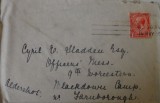 Cyril V. Madden Esq.
Officers' Mess.
9th Worcesters.
Blackdown Camp.
nr Farnborough.
Aldershot.